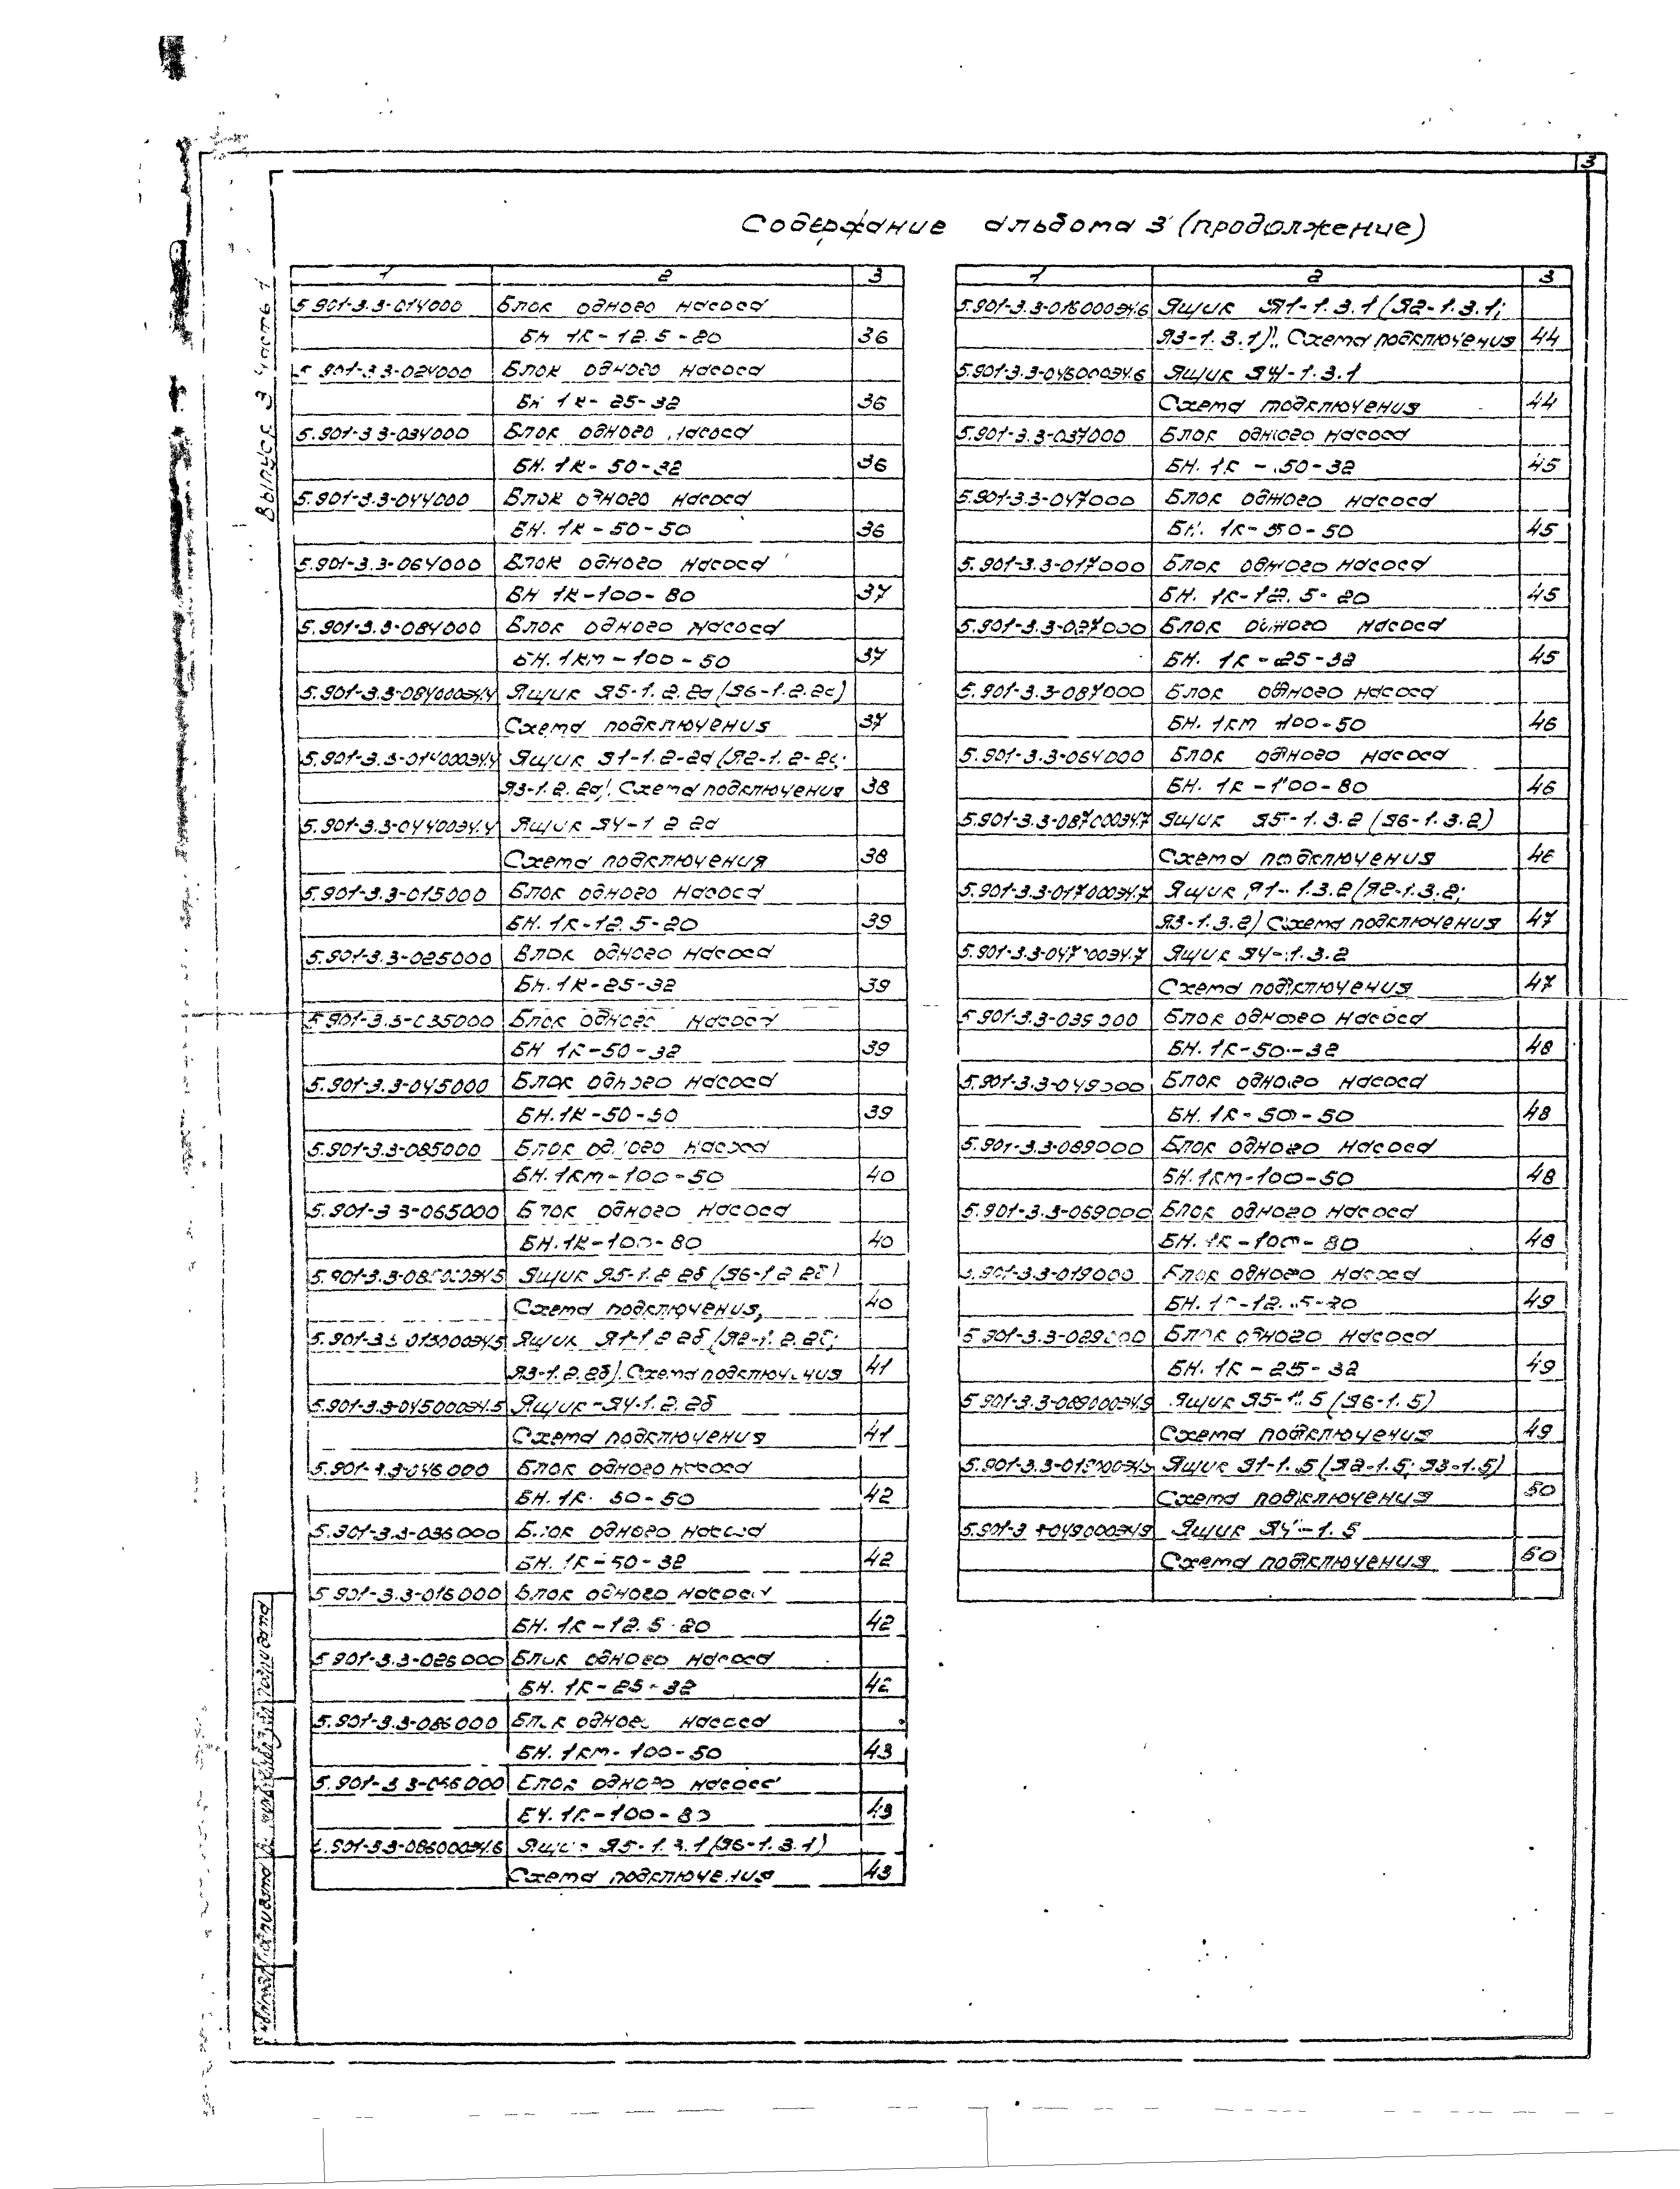 3
Содержание альбома 3 (продолжение)
Выпуск 3 часть 1
1 2 3
5.901-3.3-014000 Блок одного насоса
БН 1К-12.5-20 36
5 901-3 3-024000 Блок одного насоса
БН 1К-25-32 36
5.901-3 3-034000 Блок одного насоса
БН. 1К-50-32 36
5.901-3.3-044000 Блок одного насоса
БН. 1К-50-50 36
5.901-3.3-064000 Блок одного насоса
БН 1К-100-80 37
5.901-3.3-084000 Блок одного насоса
БН. 1КМ-100-50 37
5.901-3.3-084000Э4.4 Ящик Я5-1.2.2а (Я6-1.2.2а)
Схема подключения 37
5.901-3.3-014000Э4.4 Ящик Я1-1.2-2а (Я2-1.2-2а;
Я3-1.2.2а). Схема подключения 38
5.901-3.3-044000Э4.4 Ящик Я4-1 2 2а
Схема подключения 38
5.901-3.3-015000 Блок одного насоса
БН. 1К-12.5-20 39
5.901-3.3-025000 Блок одного насоса
БН. 1К-25-32 39
5 901-3.3-035000 Блок одного насоса
БН 1К-50-32 39
5.901-3.3-045000 Блок одного насоса
БН. 1К-50-50 39
5.901-3.3-085000 Блок одного насоса
БН. 1КМ-100-50 40
5.901-3 3-065000 Блок одного насоса
БН. 1К-100-80 40
5.901-3.3-085000Э4.5 Ящик Я5-1.2 2б (Я6-1 2 2б)
Схема подключения, 40
5.901-3.3 015000Э4.5 Ящик Я1-1 2 2б (Я2-1.2.2б;
Я3-1.2.2б). Схема подключения 41
5.901-3.3-045000Э4.5 Ящик-Я4-1.2.2б
Схема подключения 41
5.901-3.3-046000 Блок одного насоса
БН. 1К- 50-50 42
5.901-3.3-036000 Блок одного насоса
БН. 1К-50-32 42
5 901-3.3-016000 Блок одного насоса
БН. 1К-12.5-20 42
5 901-3.3-026000 Блок одного насоса
БН. 1К-25-32 42
5.901-3.3-086000 Блок одного насоса
БН. 1КМ-100-50 43
5.901-3 3-066000 Блок одного насоса
БН. 1К-100-80 43
5.901-3.3-086000Э4.6 Ящик Я5-1.3.1 (Я6-1.3.1)
Схема подключения 43
1 2 3
5.901-3.3-016000Э4.6 Ящик Я1-1.3.1 (Я2-1.3.1;
Я3-1.3.1). Схема подключения 44
5.901-3.3-046000Э4.6 Ящик Я4-1.3.1
Схема подключения 44
5.901-3.3-037000 Блок одного насоса
БН. 1К-50-32 45
5.901-3.3-047000 Блок одного насоса
БН. 1К-50-50 45
5.901-3.3-017000 Блок одного насоса
БН. 1К-12.5-20 45
5.901-3.3-027000 Блок одного насоса
БН. 1К-25-32 45
5.901-3.3-087000 Блок одного насоса
БН. 1КМ 100-50 46
5.901-3.3-064000 Блок одного насоса
БН. 1К-100-80 46
5.901-3.3-087000Э4.7 Ящик Я5-1.3.2 (Я6-1.3.2)
Схема подключения 46
5.901-3.3-017000Э4.7 Ящик Я1-1.3.2 (Я2-1.3.2;
Я3-1.3.2) Схема подключения 47
5.901-3.3-047000Э4.7 Ящик Я4-1.3.2
Схема подключения 47
5 901-3.3-039000 Блок одного насоса
БН. 1К-50-32 48
5.901-3.3-049000 Блок одного насоса
БН. 1К-50-50 48
5.901-3.3-089000 Блок одного насоса
БН. 1КМ-100-50 48
5.901-3.3-069000 Блок одного насоса
БН. 1К-100-80 48
5.901-3.3-019000 Блок одного насоса
БН. 1К-12.5-20 49
5 901-3.3-029000 Блок одного насоса
БН. 1К-25-32 49
5 901-3.3-089000Э4.9 Ящик Я5-1.5 (Я6-1.5)
Схема подключения 49
5.901-3.3-019000Э4.9 Ящик Я1-1.5 (Я2-1.5; Я3-1.5)
Схема подключения 50
5.901-3 3-049000Э4.9 Ящик Я4-1.5
Схема подключения 50